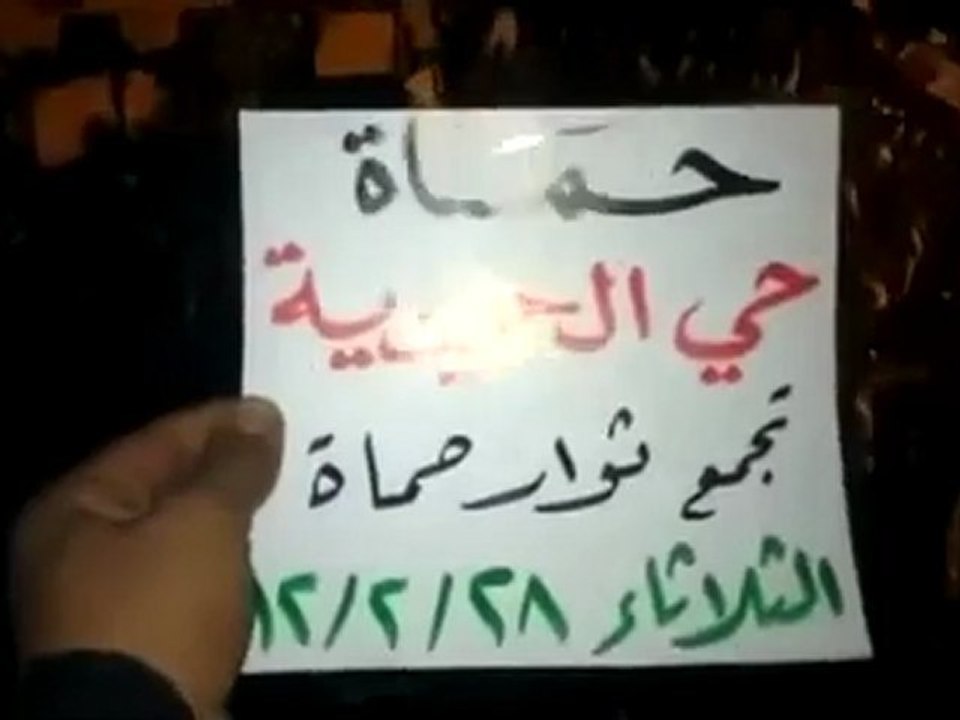 حماة
حي
تجمع ثوار حماة
الثلاثاء ٢٨/٢/١٢